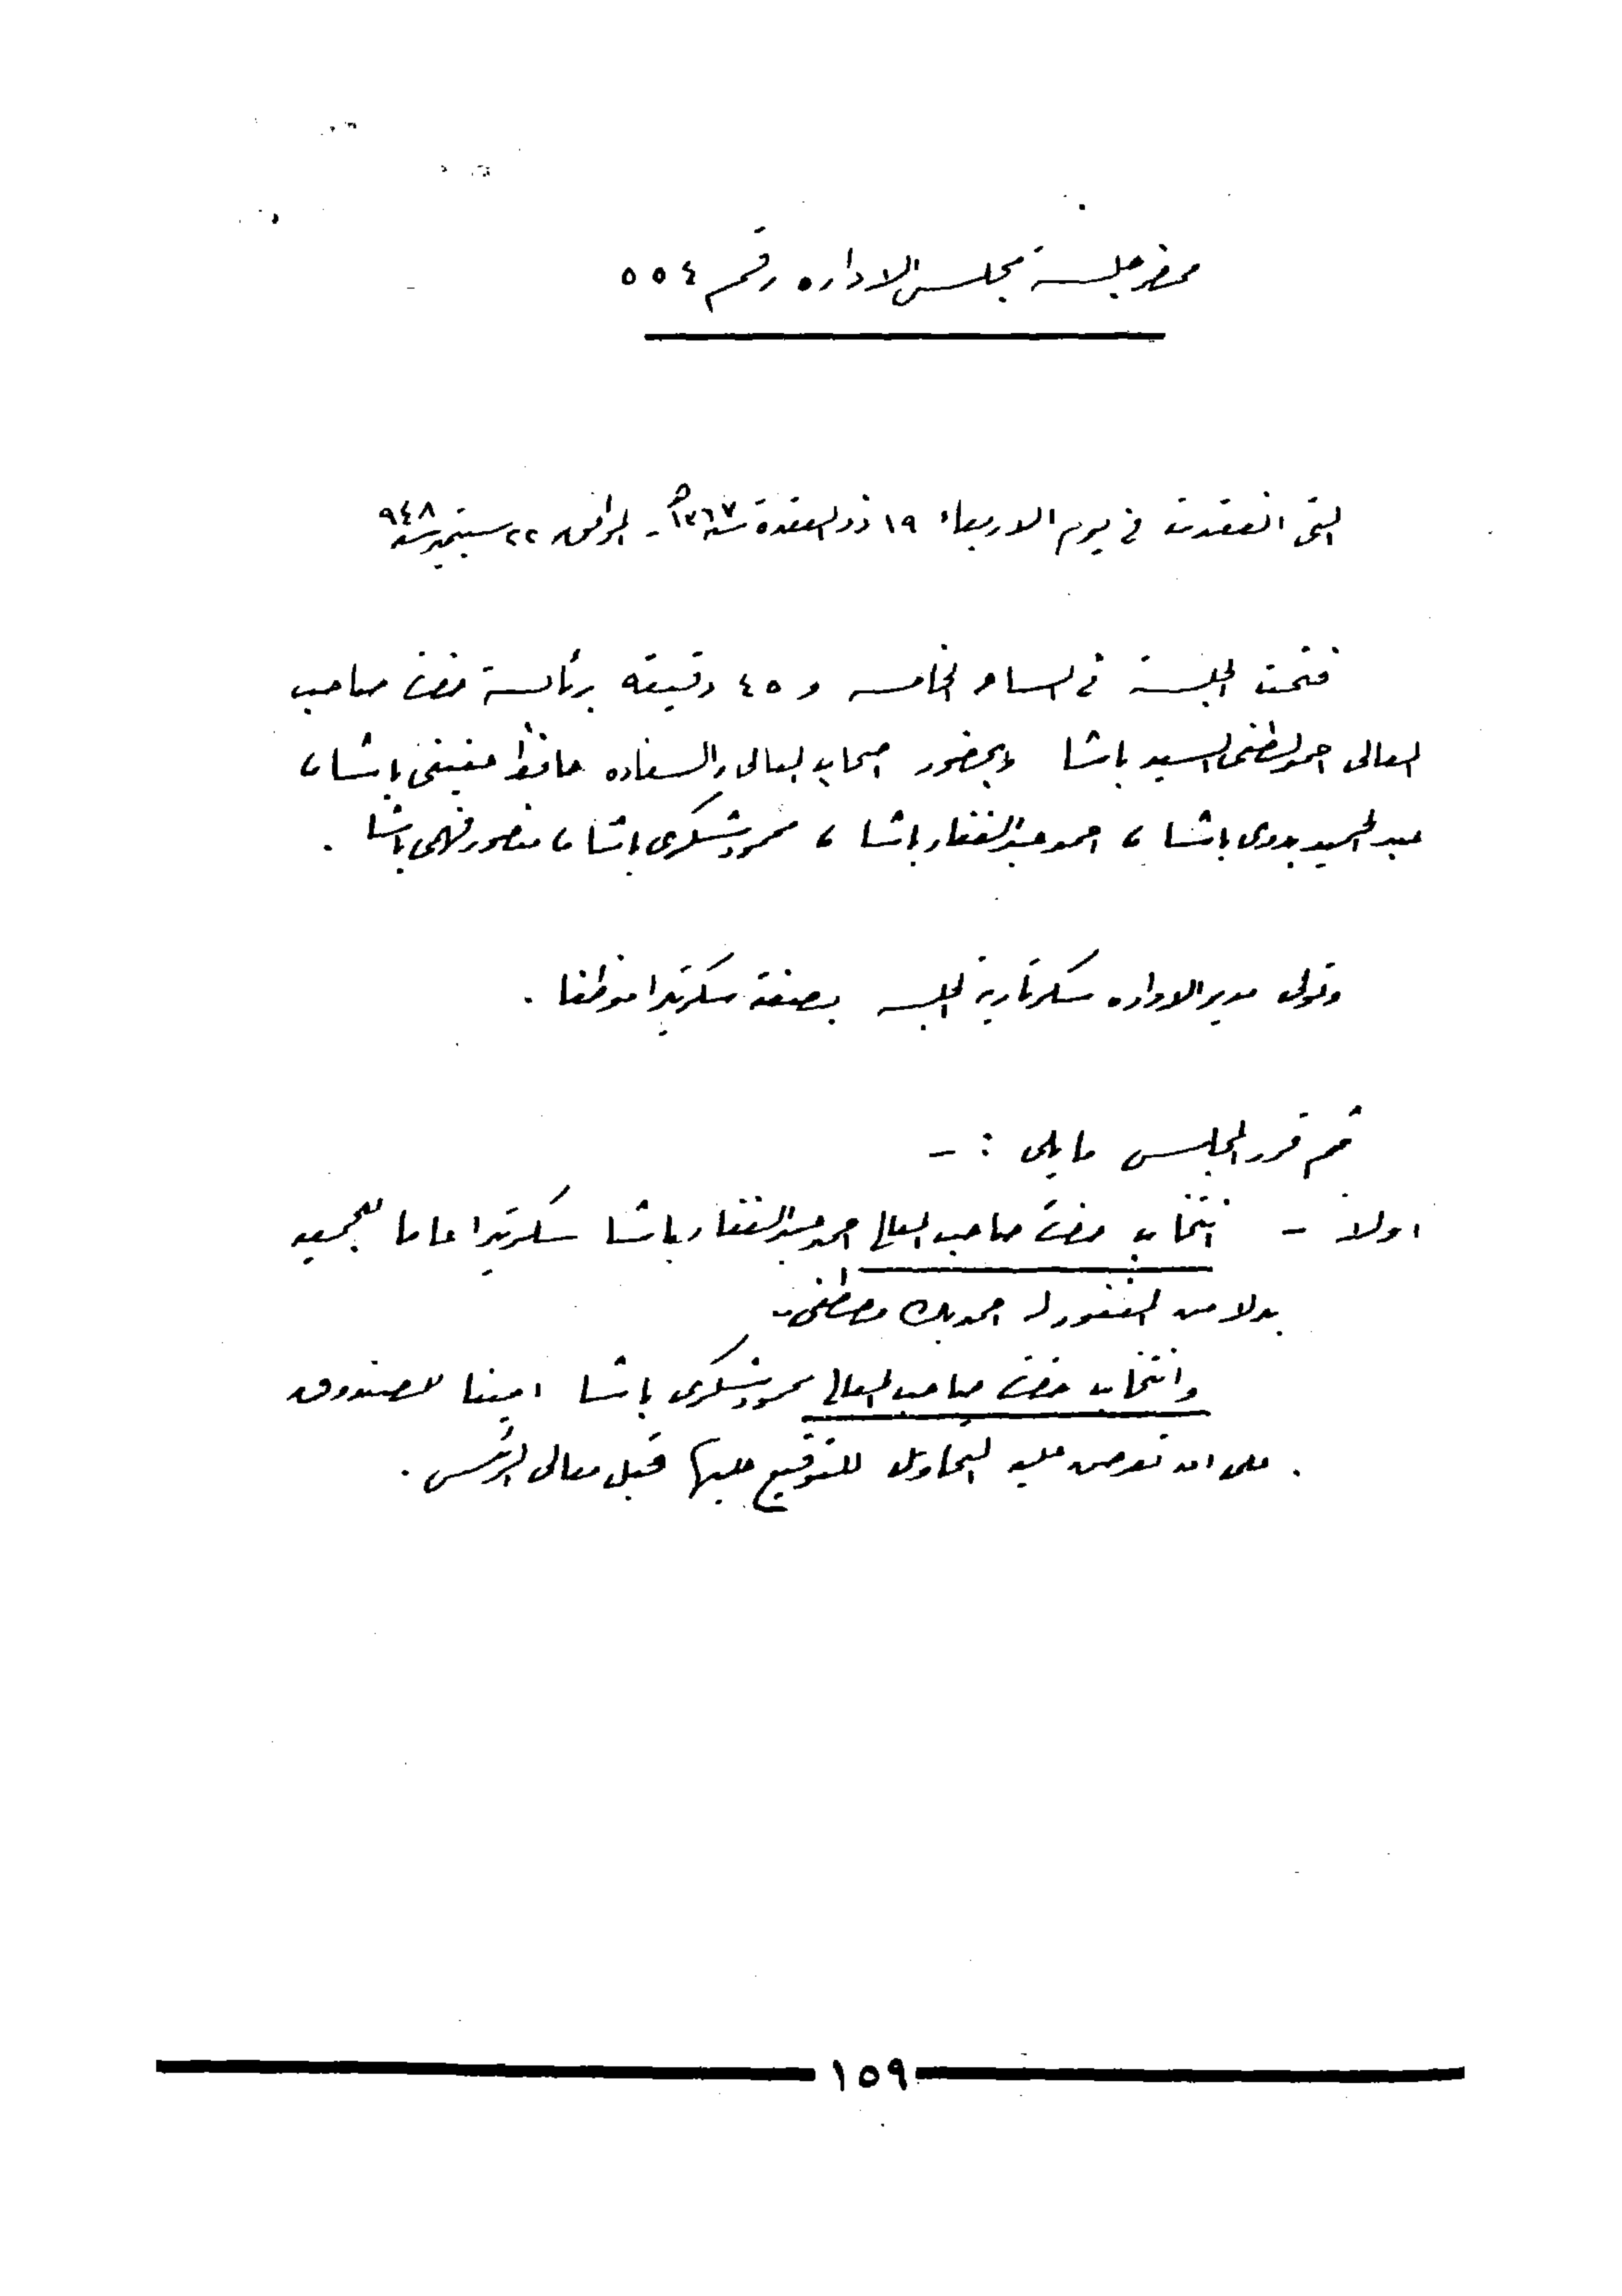 محضر جلسة مجلس الاداره رقم ٥٥٤
التى انعقدت فى يوم الاربعاء ١٩ ذو القعدة سنة ١٣٦٧ هـ - الموافق ٢٢ سبتمبر سنة ٩٤٨
فتحت الجلسة فى الساعه الخامسه و ٤٥ دقيقه برئاسة حضرة صاحب
المعالى احمد لطفى السيد باشا وبحضور اصحاب المعالى والسعاده حافظ عفيفى باشا ،
عبد الحميد بدوى باشا ، احمد عبد الغفار باشا ، محمود شكرى باشا ، منصور فهمى باشا .
وتولى مدير الاداره سكرتارية الجلسه بصفته سكرتيرا موظفا .
ثم قرر المجلس ما يلى : -
اولا - انتخاب حضرة صاحب المعالى احمد عبد الغفار باشا سكرتيرا عاما للجمعيه
بدلا من المغفور له احمد بك مصطفى -
وانتخاب حضرة صاحب المعالى محمود شكرى باشا امينا للصندوق
على ان تعرض عليه التحاويل للتوقيع عليها قبل معالى الرئيس .
١٥٩